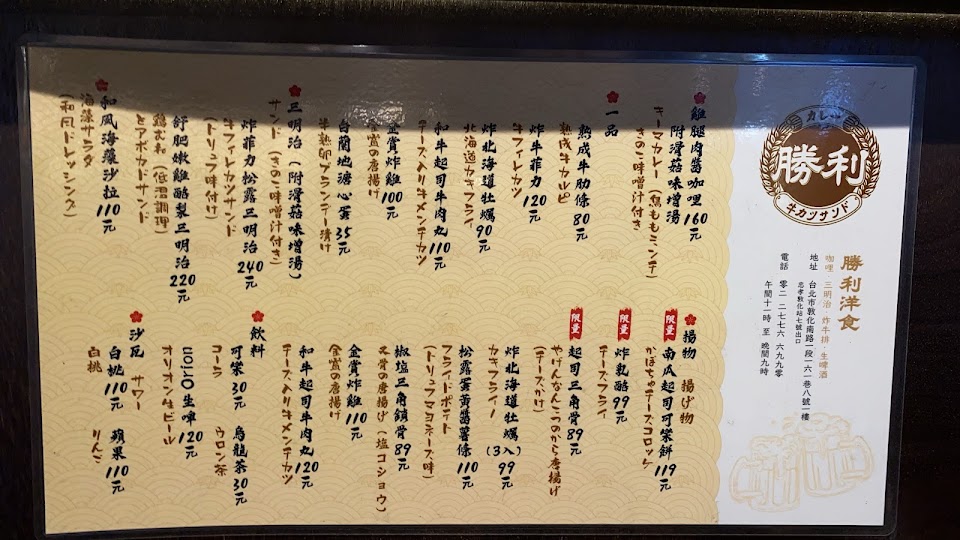 カレー
勝利
牛カツサンド
勝利洋食
咖哩·三明治·炸牛排·生啤酒
地址 台北市敦化南路一段一六一巷八號一樓
忠孝敦化站七號出口
電話 零二 二七七六 六九九零
午間十一時 至 晚間九時
雞腿肉醬咖哩160元
附滑菇味增湯
キーマカレー(鶏ももミンチ)
きのこ味噌汁付き
一品
熟成牛肋條 80元
熟成牛カルビ
炸牛菲力120元
牛フィレカツ
炸北海道牡蠣90元
北海道カキフライ
和牛起司牛肉丸110元
チーズ入り牛メンチカツ
金賞炸雞100元
金賞の唐揚げ
白蘭地溏心蛋35元
半熟卵ブランデー漬け
三明治(附滑菇味增湯)
サンド(きのこ味噌汁付き)
炸菲力松露三明治240元
牛フィレカツサンド
(トリュフ味付け)
舒肥嫩雞酪梨三明治220元
鶏むね(低温調理)
とアボカドサンド
和風海藻沙拉110元
海藻サラダ
(和風ドレッシング)
揚物 揚げ物
限量 南瓜起司可樂餅119元
かぼちゃチーズコロッケ
限量 炸乳酪99元
チーズフライ
限量 起司三角骨89元
やげんなんこつのから唐揚げ
(チーズかけ)
炸北海道牡蠣(3入)99元
カキフライ
松露蛋黃醬薯條110元
フライドポテト
(トリュフマヨネーズ味)
椒塩三角鎖骨89元
叉骨の唐揚げ(塩コショウ)
金賞炸雞110元
金賞の唐揚げ
和牛起司牛肉丸120元
チーズ入り牛メンチカツ
飲料
可樂30元 烏龍茶30元
コーラ ウロン茶
orion生啤120元
オリオン生ビール
沙瓦 サワー
白桃110元 蘋果110元
白桃 りんご